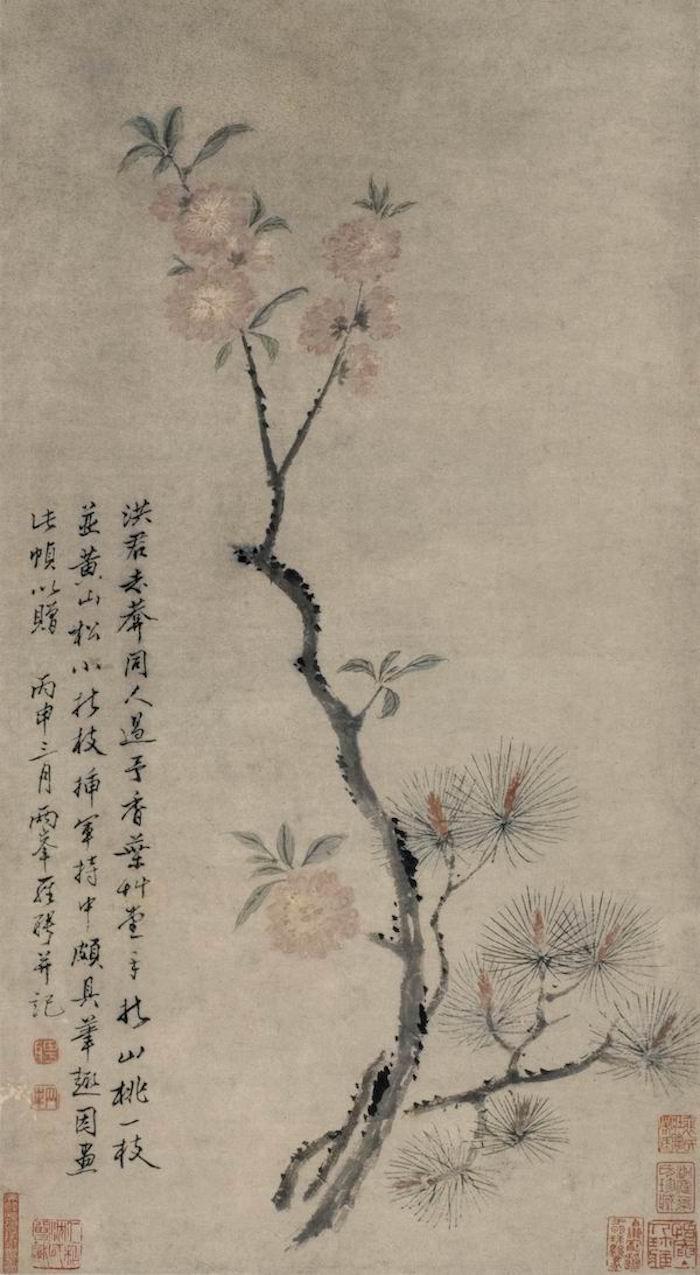 洪君志莘同人過予香葉艸堂手折山桃一枝
並黃山松小折枝插軍持中頗具華趣因畫
此幀以贈　丙申三月兩峯羅聘并記